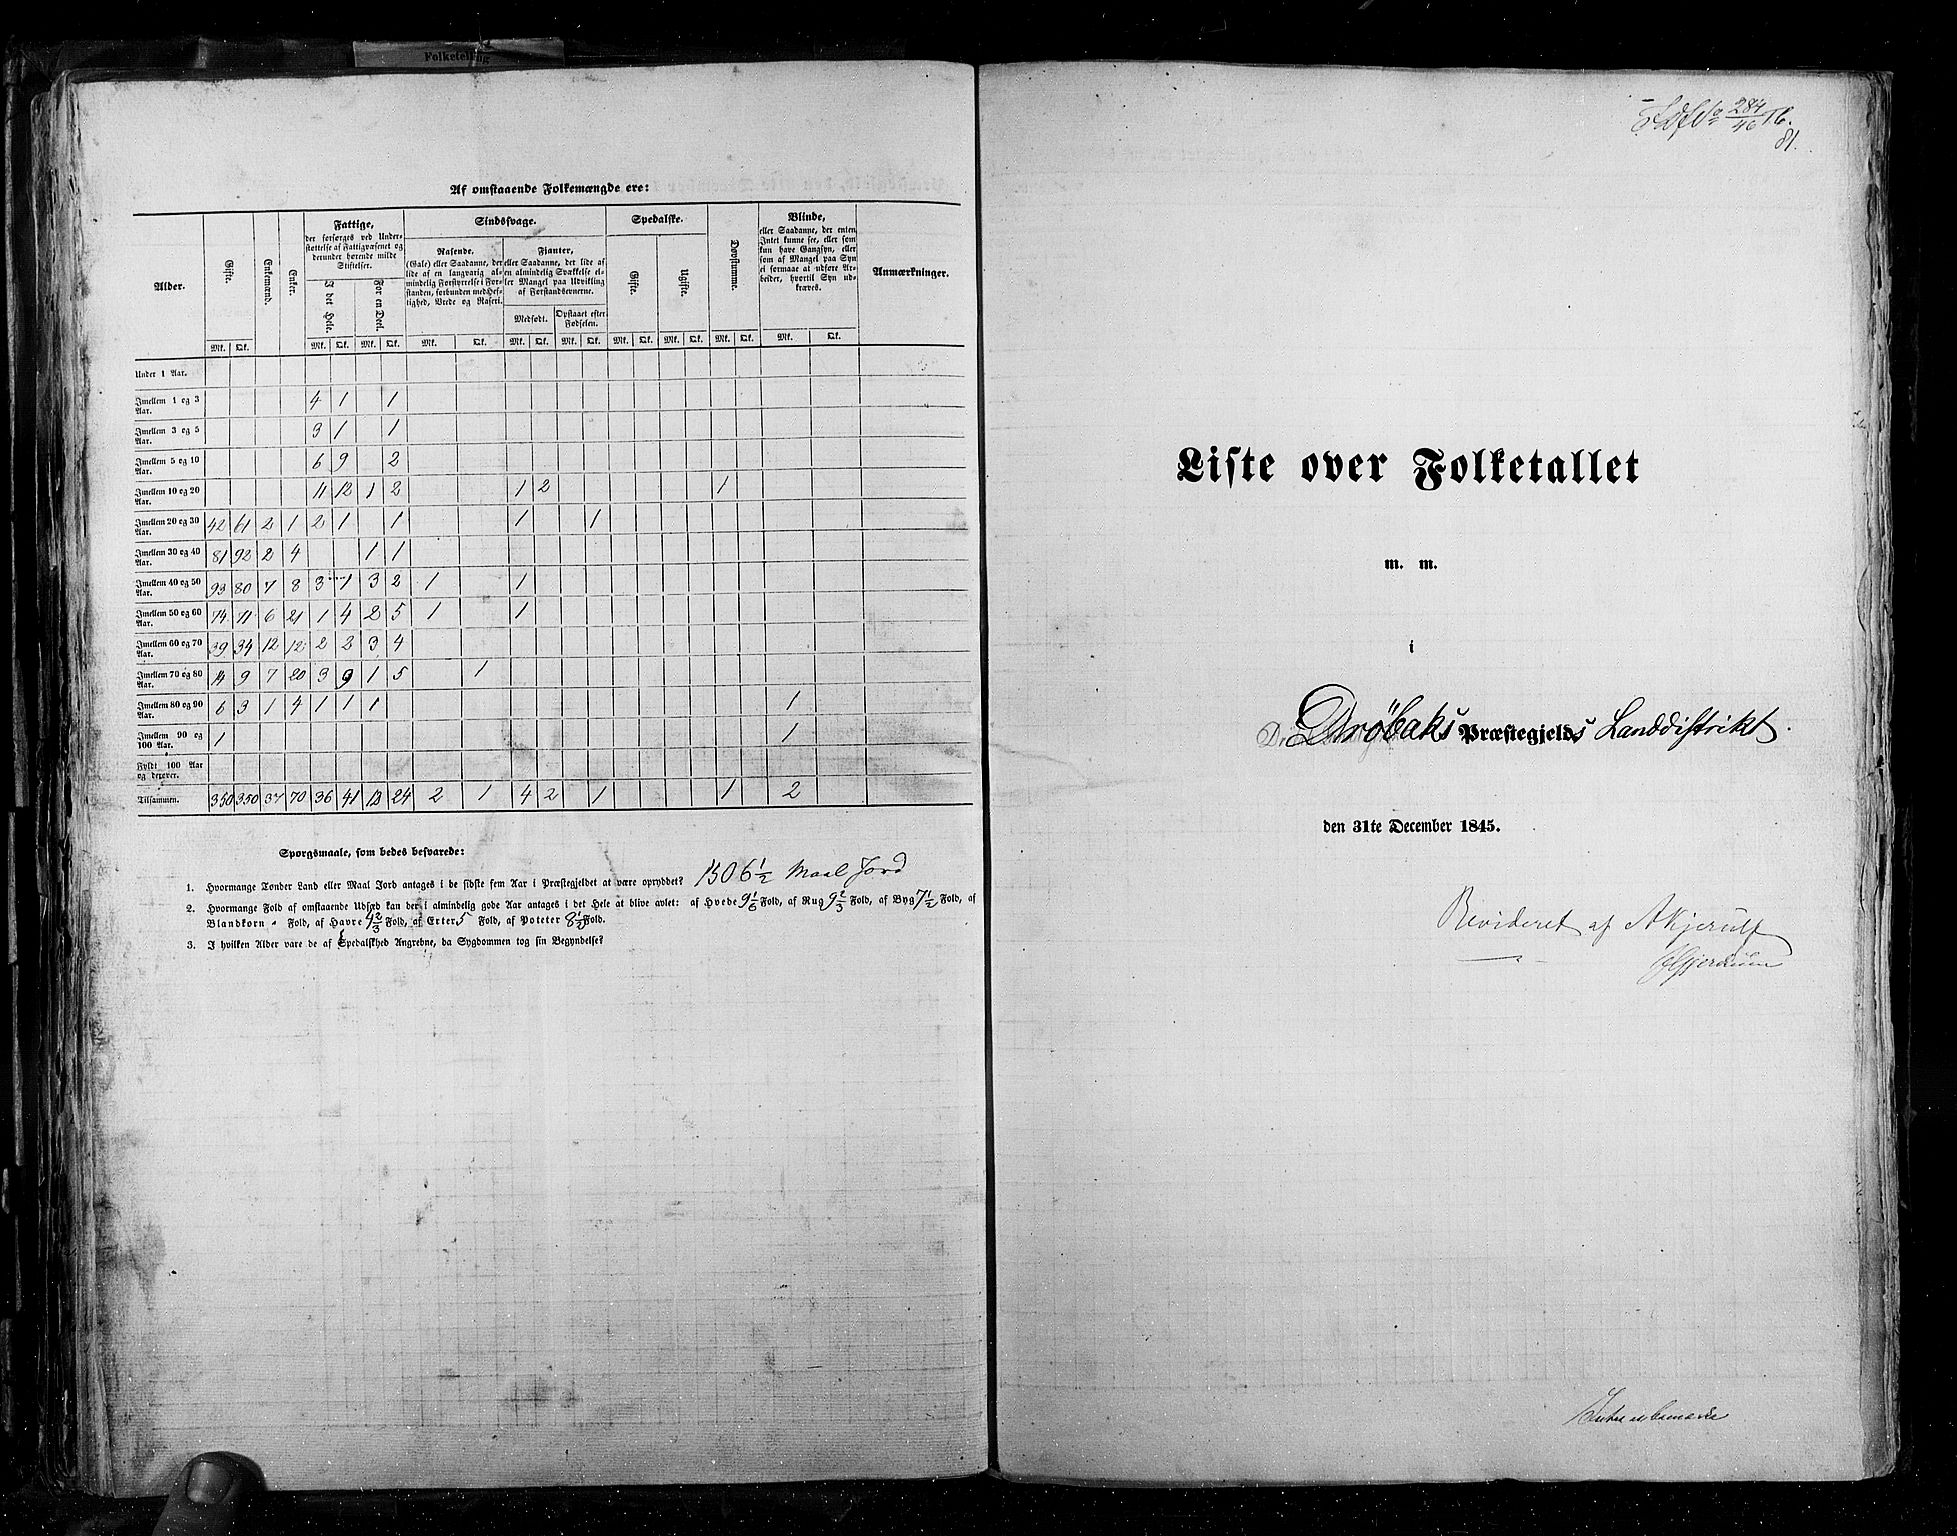 Folketelling
Af omstaaende Folkemængde ere:
Alder. Gifte. Enkemænd. Enker. Fattige, Sindssvage. Spedalske. Døvstumme. Blinde, Anmærkninger.
der forsørges ved Under-
støttelse af Fattigvæsenet og
derunder hørende milde
Stiftelser.
I det Hele. For en Deel.
Rasende.
(Gale) eller Saadanne, der
lide af en langvarig al-
mindelig Forstyrrelse i For-
standen, forbunden med Hef-
tighed, Vrede og Raseri.
Fjanter,
eller Saadanne, der lide af
en almindelig Svækkelse el-
ler Mangel paa Udvikling
af Forstandsevnerne.
Medfødt. Opstaaet efter
Fødselen.
Gifte. Ugifte.
eller Saadanne, der enten
Intet kunne see, eller som
kun have Gangsyn, eller
som af Mangel paa Syn
ei formaae at udføre Ar-
beider, hvortil Syn ud-
kræves.
Mk. Qk. Mk. Qk. Mk. Qk. Mk. Qk. Mk. Qk. Mk. Qk. Mk. Qk. Mk. Qk. Mk. Qk. Mk. Qk.
Under 1 Aar.
Imellem 1 og 3 Aar. 4 1 1
Imellem 3 og 5 Aar. 3 1 1
Imellem 5 og 10 Aar. 6 9 2
Imellem 10 og 20 Aar. 11 12 1 2 1 2 1
Imellem 20 og 30 Aar. 42 61 2 1 2 1 1 1 1
Imellem 30 og 40 Aar. 81 92 2 4 1 1
Imellem 40 og 50 Aar. 93 80 7 8 3 1 3 2 1 1
Imellem 50 og 60 Aar. 74 71 6 21 1 4 2 5 1 1
Imellem 60 og 70 Aar. 39 34 12 12 2 2 3 4
Imellem 70 og 80 Aar. 14 9 7 20 3 9 1 5 1
Imellem 80 og 90 Aar. 6 3 1 4 1 1 1 1
Imellem 90 og 100 Aar. 1 1
Fyldt 100 Aar og derover.
Tilsammen. 350 350 37 70 36 41 12 24 2 1 4 2 1 1 2
Spørgsmaale, som bedes besvarede:
1. Hvormange Tønder Land eller Maal Jord antages i de sidste fem Aar i Præstegjeldet at være opryddet? 1306 1/2 Maal Jord
2. Hvormange Fold af omstaaende Udsæd kan der i almindelig gode Aar antages i det Hele at blive avlet: af Hvede 9 1/6 Fold, af Rug 9 2/3 Fold, af Byg 7 1/2 Fold, af
Blandkorn " Fold, af Havre 4 2/3 Fold, af Erter 5 Fold, af Poteter 8 1/2 Fold.
3. I hvilken Alder vare de af Spedalskhed Angrebne, da Sygdommen tog sin Begyndelse?
284/46
81.
Liste over Folketallet
m. m.
i
Drøbaks Præstegjelds Landdistrikt.
den 31te December 1845.
Revideret af AKjerulf